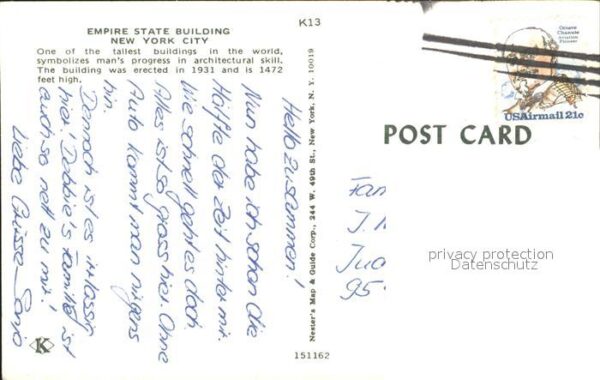 EMPIRE STATE BUILDING
NEW YORK CITY
One of the tallest buildings in the world,
symbolizes man's progress in architectural skill.
The building was erected in 1931 and is 1472
feet high.
K13
Hello zusammen!
Nun habe ich schon die
Hälfte der Zeit hinter mir.
Wie schnell geht es doch.
Alles ist so gross hier. Ohne
Auto kommt man nirgens
hin.
Dennoch ist es
hier! Debbie's Familie ist
auch so nett zu mir!
Liebe Grüsse
K
Nester's Map & Guide Corp., 244 W. 49th St., New York, N. Y. 10019
151162
Octave
Chanute
Aviation
Pioneer
USAirmail 21c
POST CARD
Fam
J.
95
privacy protection
Datenschutz